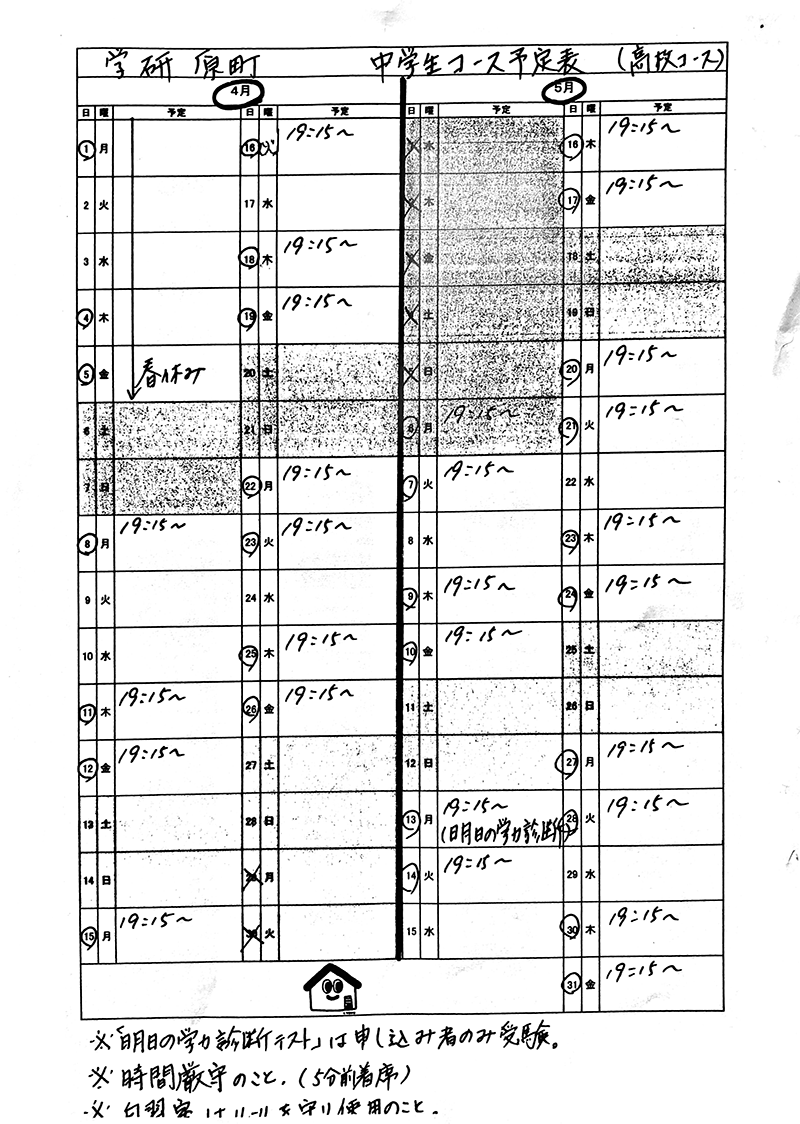 学研 原町 中学生コース予定表 (高校コース)
4月 5月
日 曜 予定 日 曜 予定 日 曜 予定 日 曜 予定
1 月 16 火 19:15～ 水 16 木 19:15～
2 火 17 水 木 17 金 19:15～
3 水 18 木 19:15～ 金 18 土
4 木 19 金 19:15～ 土 19 日
5 金 春休み 20 土 日 20 月 19:15～
6 土 21 日 6 月 19:15～ 21 火 19:15～
7 日 22 月 19:15～ 7 火 19:15～ 22 水
8 月 19:15～ 23 火 19:15～ 8 水 23 木 19:15～
9 火 24 水 9 木 19:15～ 24 金 19:15～
10 水 25 木 19:15～ 10 金 19:15～ 25 土
11 木 19:15～ 26 金 19:15～ 11 土 26 日
12 金 19:15～ 27 土 12 日 27 月 19:15～
13 土 28 日 13 月 19:15～ 28 火 19:15～
(明日の学力診断
14 日 29 月 14 火 19:15～ 29 水
15 月 19:15～ 30 火 15 水 30 木 19:15～
31 金 19:15～
※「明日の学力診断テスト」は申し込み者のみ受験。
※時間厳守のこと.(5分前着席)
※自習室はルールを守り使用のこと。